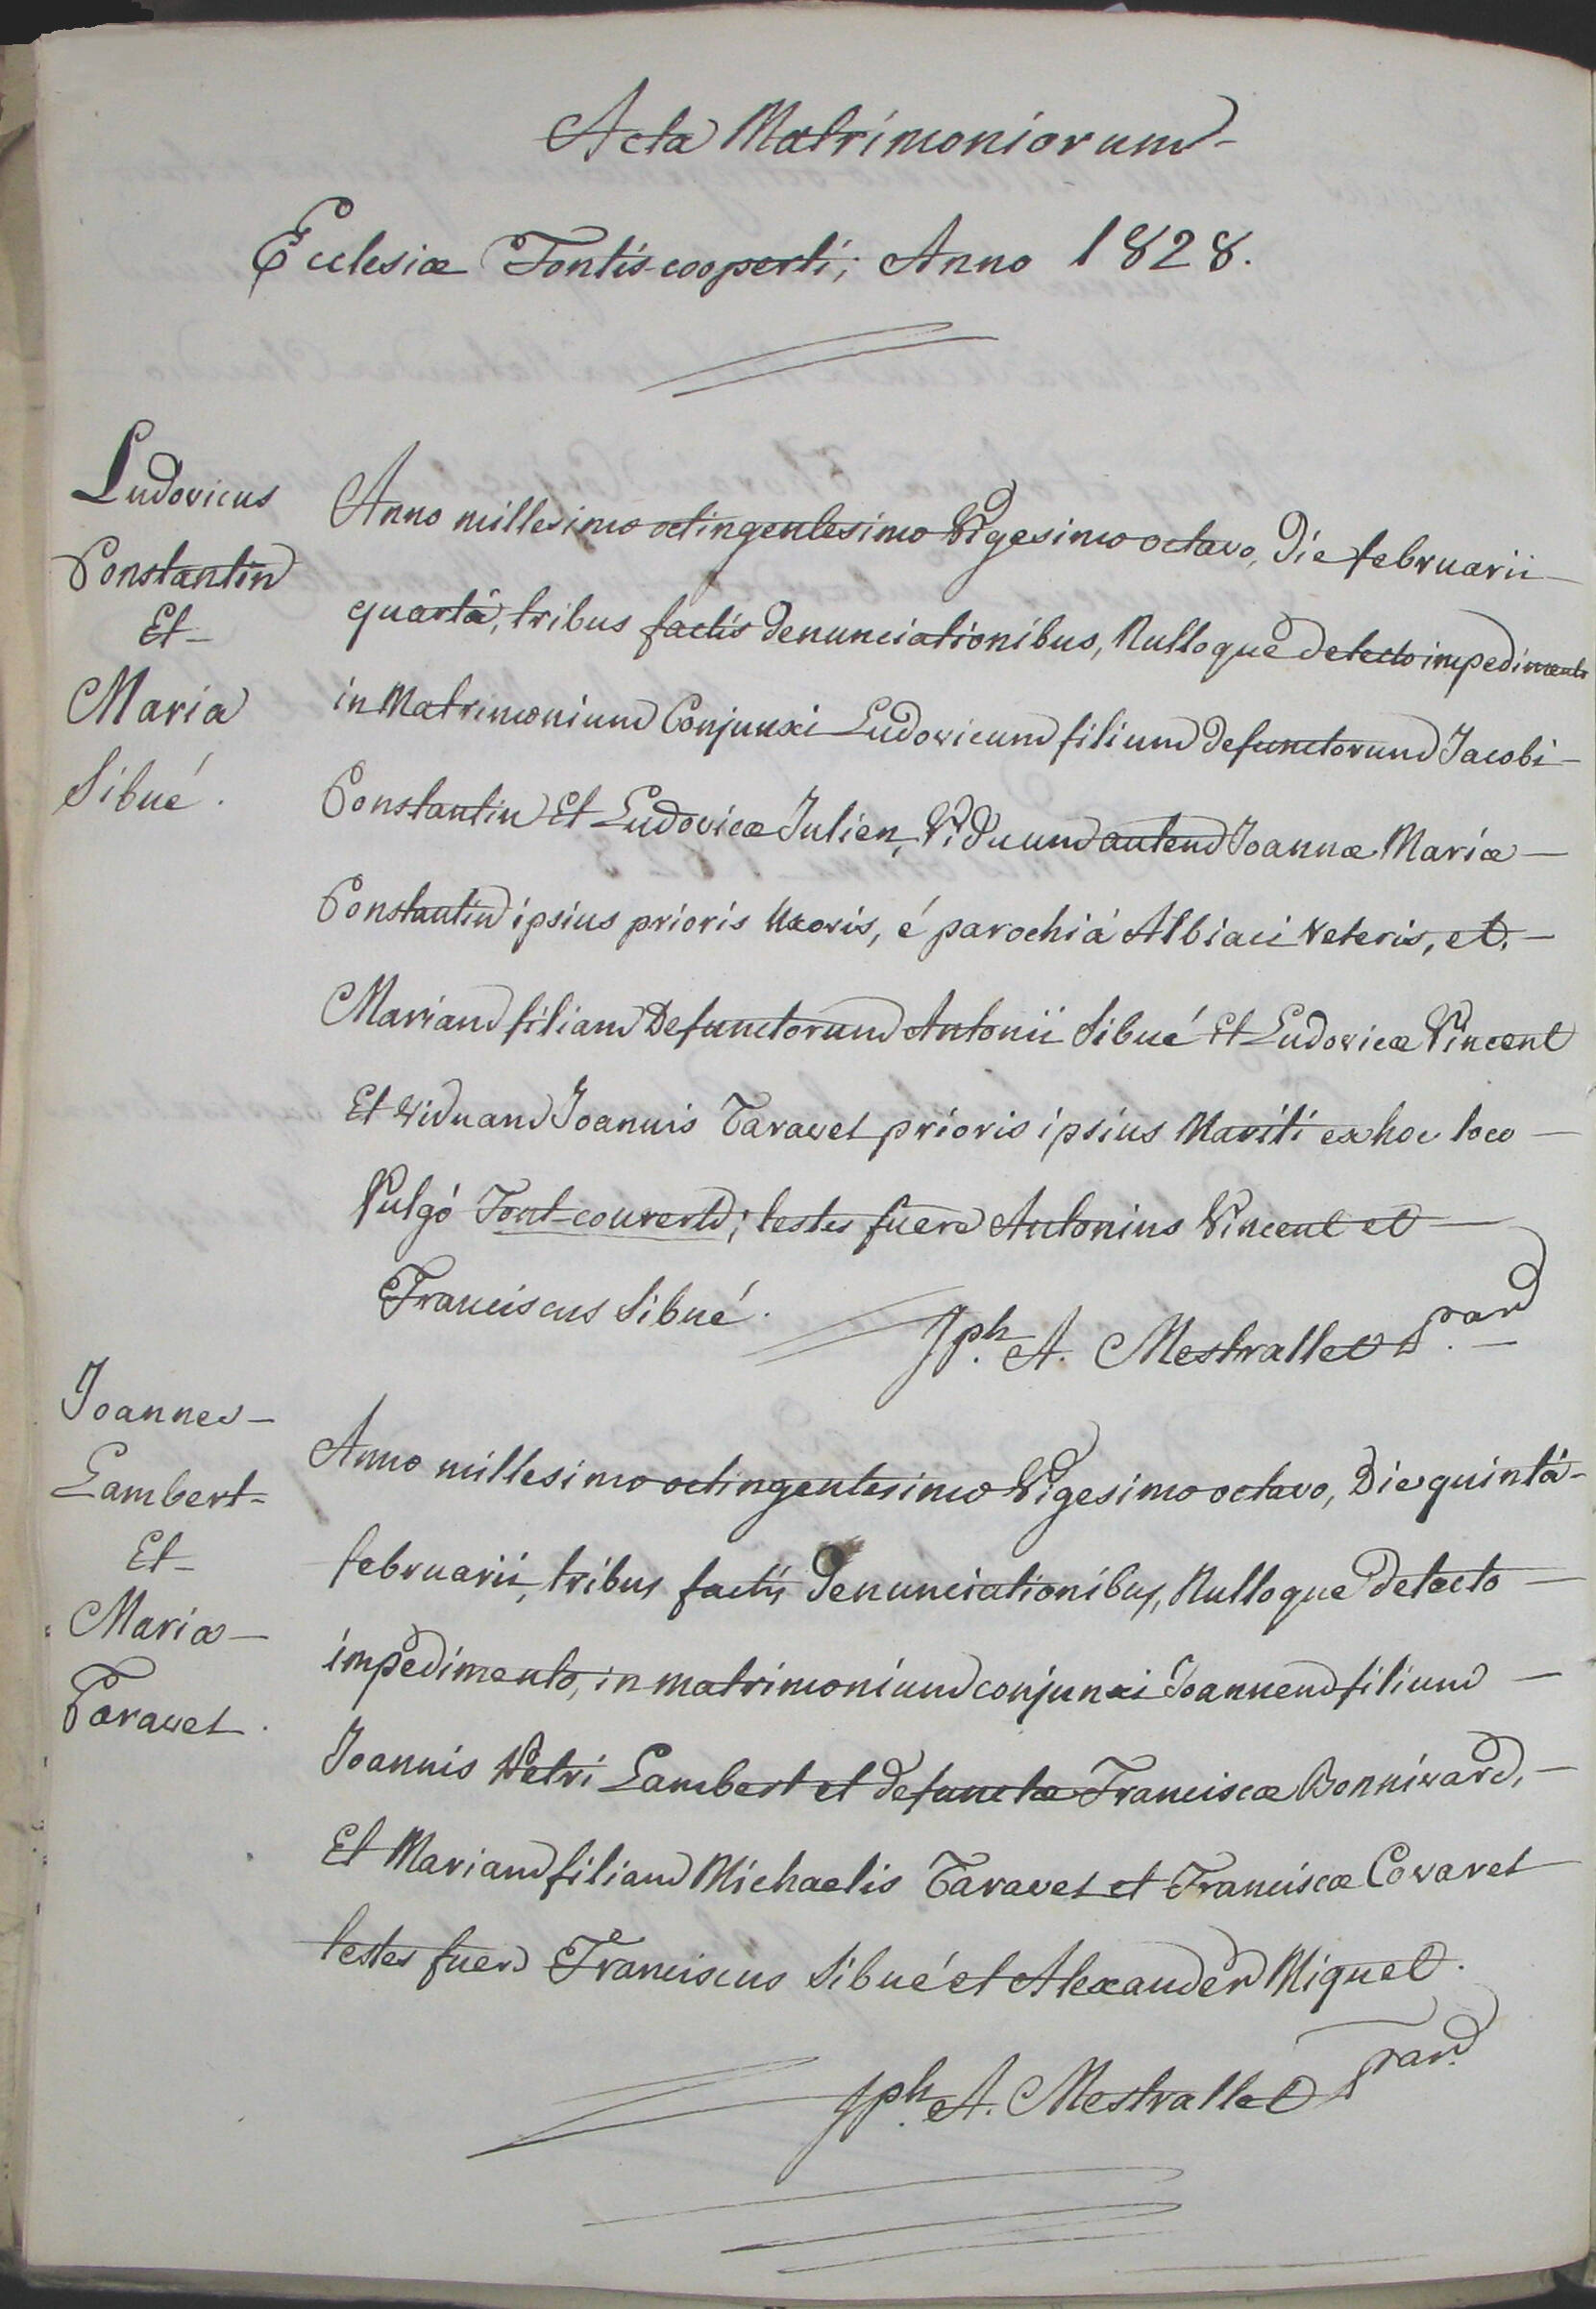 Acta Matrimoniorum
Ecclesiæ Fontis-cooperti; Anno 1828.
Ludovicus
Constantin
Et
Maria
Sibué.
Anno millesimo octingentesimo Vigesimo octavo, Die februarii
quartâ, tribus factis denunciationibus, Nulloque detecto impedimento
in Matrimonium Conjunxi Ludovicum filium defunctorum Jacobi
Constantin Et Ludovicæ Julien, Viduum autem Joannæ Mariæ
Constantin ipsius prioris Uxoris, é parochiâ Albiaci Veteris, et
Mariam filiam Defunctorum Antonii Sibué Et Ludovicæ Vincent
Et viduam Joannis Taravel prioris ipsius Mariti ex hoc loco
Vulgó Font-couverte; testes fuere Antonius Vincent et
Franciscus Sibué.
Jph. A. Mestrallet
Joannes
Lambert
Et
Maria
Taravel.
Anno millesimo octingentesimo Vigesimo octavo, Die quintâ
februarii, tribus factis Denunciationibus, Nulloque detecto
impedimento, in matrimonium conjunxi Joannem filium
Joannis Petri Lambert et defunctæ Franciscæ Bonnivard,
Et Mariam filiam Michaelis Taravel et Franciscæ Covarel
testes fuere Franciscus Sibué et Alexander Miquel.
Jph. A. Mestrallet